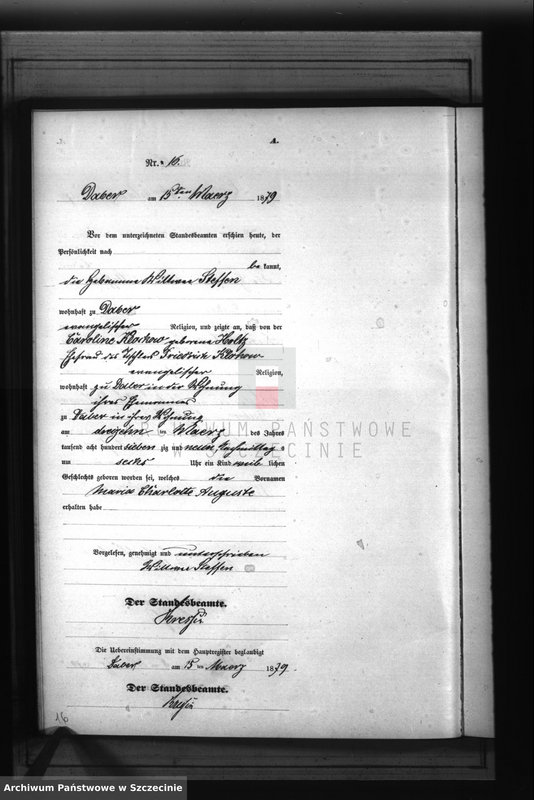 A.
Nr. 16.
Daber am 15ten Maerz 1879
Vor dem unterzeichneten Standesbeamten erschien heute, der
Persönlichkeit nach
be kannt,
die Hebamme Wittwe Steffen
wohnhaft zu Daber
evangelischer Religion, und zeigte an, daß von der
Caroline Klockow geborene Holtz
Ehefrau des Friedrich Klockow
evangelischer Religion,
wohnhaft zu Daber in der Wohnung
ihres Ehemannes
zu Daber in ihrer Wohnung
am dreizehn ten Maerz des Jahres
tausend acht hundert sieben zig und neun Nachmittags
um sechs Uhr ein Kind weib lichen
Geschlechts geboren worden sei, welches die Vornamen
Maria Charlotte Auguste
erhalten habe
Vorgelesen, genehmigt und unterschrieben
Wittwe Steffen
Der Standesbeamte.
Die Uebereinstimmung mit dem Hauptregister beglaubigt
Daber am 15 ten Maerz 1879.
Der Standesbeamte.
16
ARCHIWUM PAŃSTWOWE
W SZCZECINIE
Archiwum Państwowe w Szczecinie